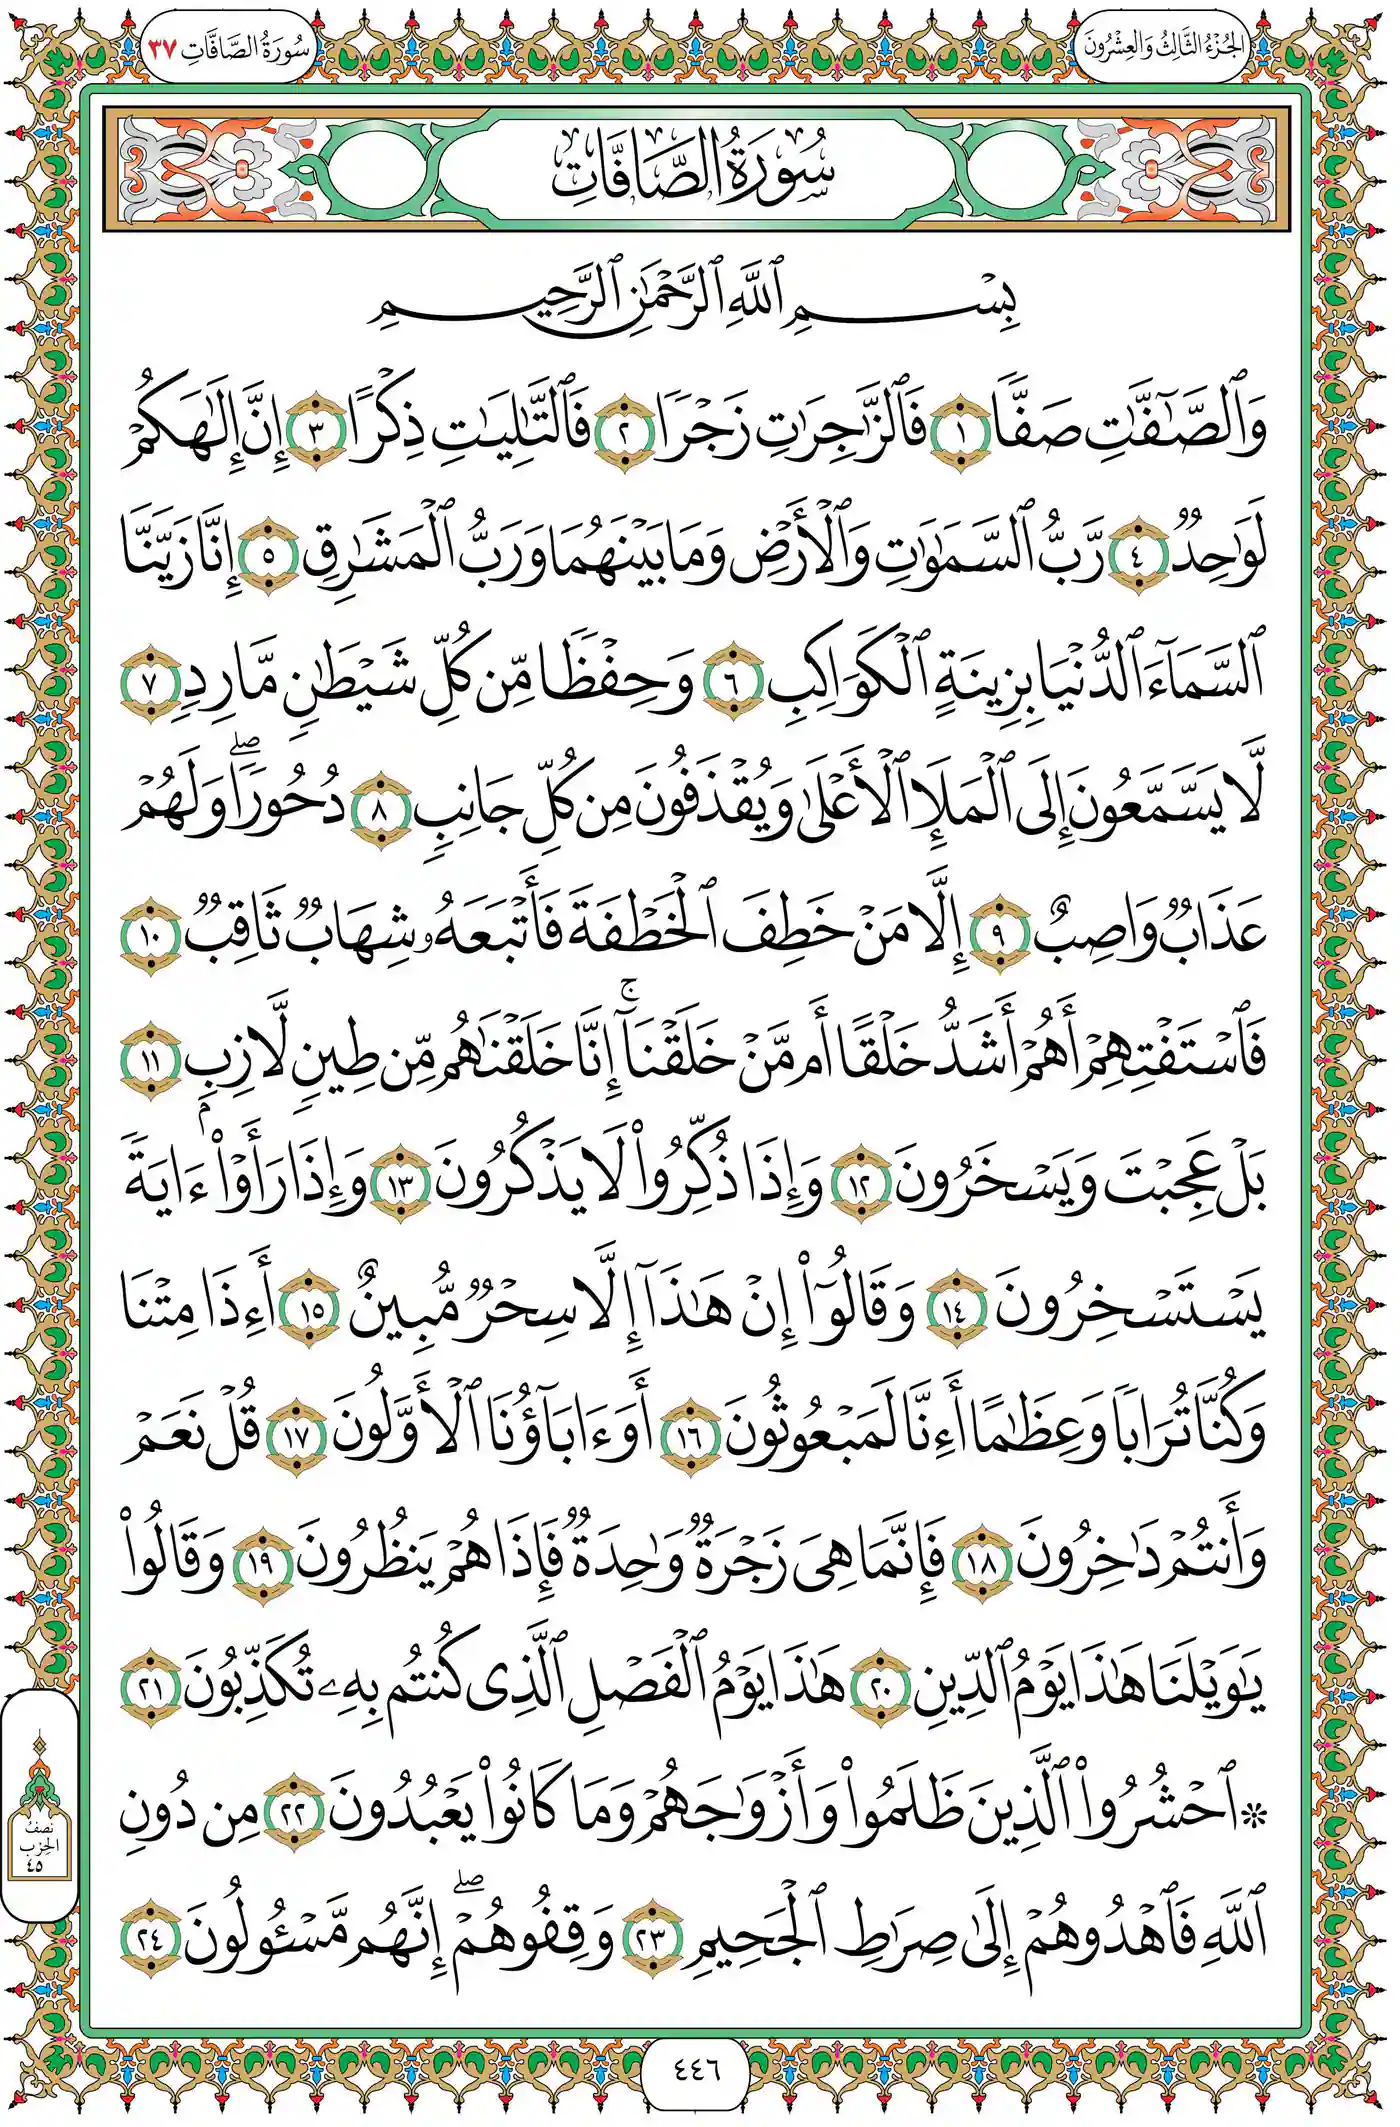 الجُزْءُ الثَّالِثُ وَالعِشْرُونَ
سُورَةُ الصَّافَّاتِ ٣٧
سُورَةُ الصَّافَّاتِ
بِسْمِ ٱللَّهِ ٱلرَّحْمَٰنِ ٱلرَّحِيمِ
وَٱلصَّٰٓفَّٰتِ صَفّٗا ١ فَٱلزَّٰجِرَٰتِ زَجۡرٗا ٢ فَٱلتَّٰلِيَٰتِ ذِكۡرًا ٣ إِنَّ إِلَٰهَكُمۡ
لَوَٰحِدٞ ٤ رَّبُّ ٱلسَّمَٰوَٰتِ وَٱلۡأَرۡضِ وَمَا بَيۡنَهُمَا وَرَبُّ ٱلۡمَشَٰرِقِ ٥ إِنَّا زَيَّنَّا
ٱلسَّمَآءَ ٱلدُّنۡيَا بِزِينَةٍ ٱلۡكَوَاكِبِ ٦ وَحِفۡظٗا مِّن كُلِّ شَيۡطَٰنٖ مَّارِدٖ ٧
لَّا يَسَّمَّعُونَ إِلَى ٱلۡمَلَإِ ٱلۡأَعۡلَىٰ وَيُقۡذَفُونَ مِن كُلِّ جَانِبٖ ٨ دُحُورٗاۖ وَلَهُمۡ
عَذَابٞ وَاصِبٌ ٩ إِلَّا مَنۡ خَطِفَ ٱلۡخَطۡفَةَ فَأَتۡبَعَهُۥ شِهَابٞ ثَاقِبٞ ١٠
فَٱسۡتَفۡتِهِمۡ أَهُمۡ أَشَدُّ خَلۡقًا أَم مَّنۡ خَلَقۡنَآۚ إِنَّا خَلَقۡنَٰهُم مِّن طِينٖ لَّازِبِۭ ١١
بَلۡ عَجِبۡتَ وَيَسۡخَرُونَ ١٢ وَإِذَا ذُكِّرُواْ لَا يَذۡكُرُونَ ١٣ وَإِذَا رَأَوۡاْ ءَايَةٗ
يَسۡتَسۡخِرُونَ ١٤ وَقَالُوٓاْ إِنۡ هَٰذَآ إِلَّا سِحۡرٞ مُّبِينٌ ١٥ أَءِذَا مِتۡنَا
وَكُنَّا تُرَابٗا وَعِظَٰمًا أَءِنَّا لَمَبۡعُوثُونَ ١٦ أَوَءَابَآؤُنَا ٱلۡأَوَّلُونَ ١٧ قُلۡ نَعَمۡ
وَأَنتُمۡ دَٰخِرُونَ ١٨ فَإِنَّمَا هِيَ زَجۡرَةٞ وَٰحِدَةٞ فَإِذَا هُمۡ يَنظُرُونَ ١٩ وَقَالُواْ
يَٰوَيۡلَنَا هَٰذَا يَوۡمُ ٱلدِّينِ ٢٠ هَٰذَا يَوۡمُ ٱلۡفَصۡلِ ٱلَّذِي كُنتُم بِهِۦ تُكَذِّبُونَ ٢١
۞ ٱحۡشُرُواْ ٱلَّذِينَ ظَلَمُواْ وَأَزۡوَٰجَهُمۡ وَمَا كَانُواْ يَعۡبُدُونَ ٢٢ مِن دُونِ
ٱللَّهِ فَٱهۡدُوهُمۡ إِلَىٰ صِرَٰطِ ٱلۡجَحِيمِ ٢٣ وَقِفُوهُمۡۖ إِنَّهُم مَّسۡـُٔولُونَ ٢٤
نصف
الحزب
٤٥
٤٤٦